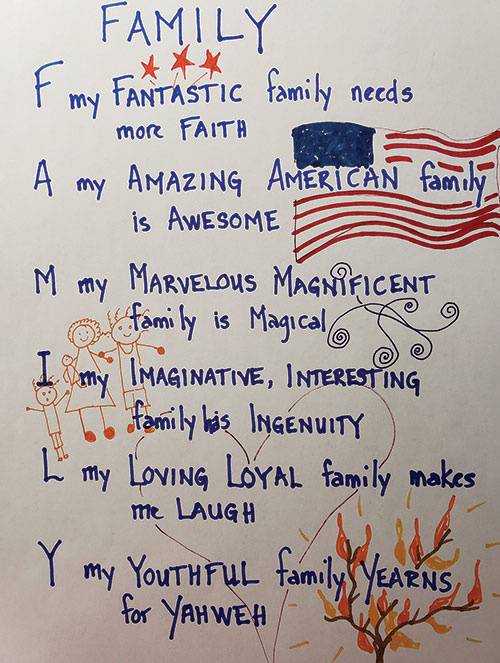 FAMILY
F my FANTASTIC family needs
more FAITH
A my AMAZING AMERICAN family
is AWESOME
M my MARVELOUS MAGNIFICENT
family is MAGICAL
I my IMAGINATIVE, INTERESTING
family has INGENUITY
L my LOVING LOYAL family makes
me LAUGH
Y my YOUTHFUL family YEARNS
for YAHWEH